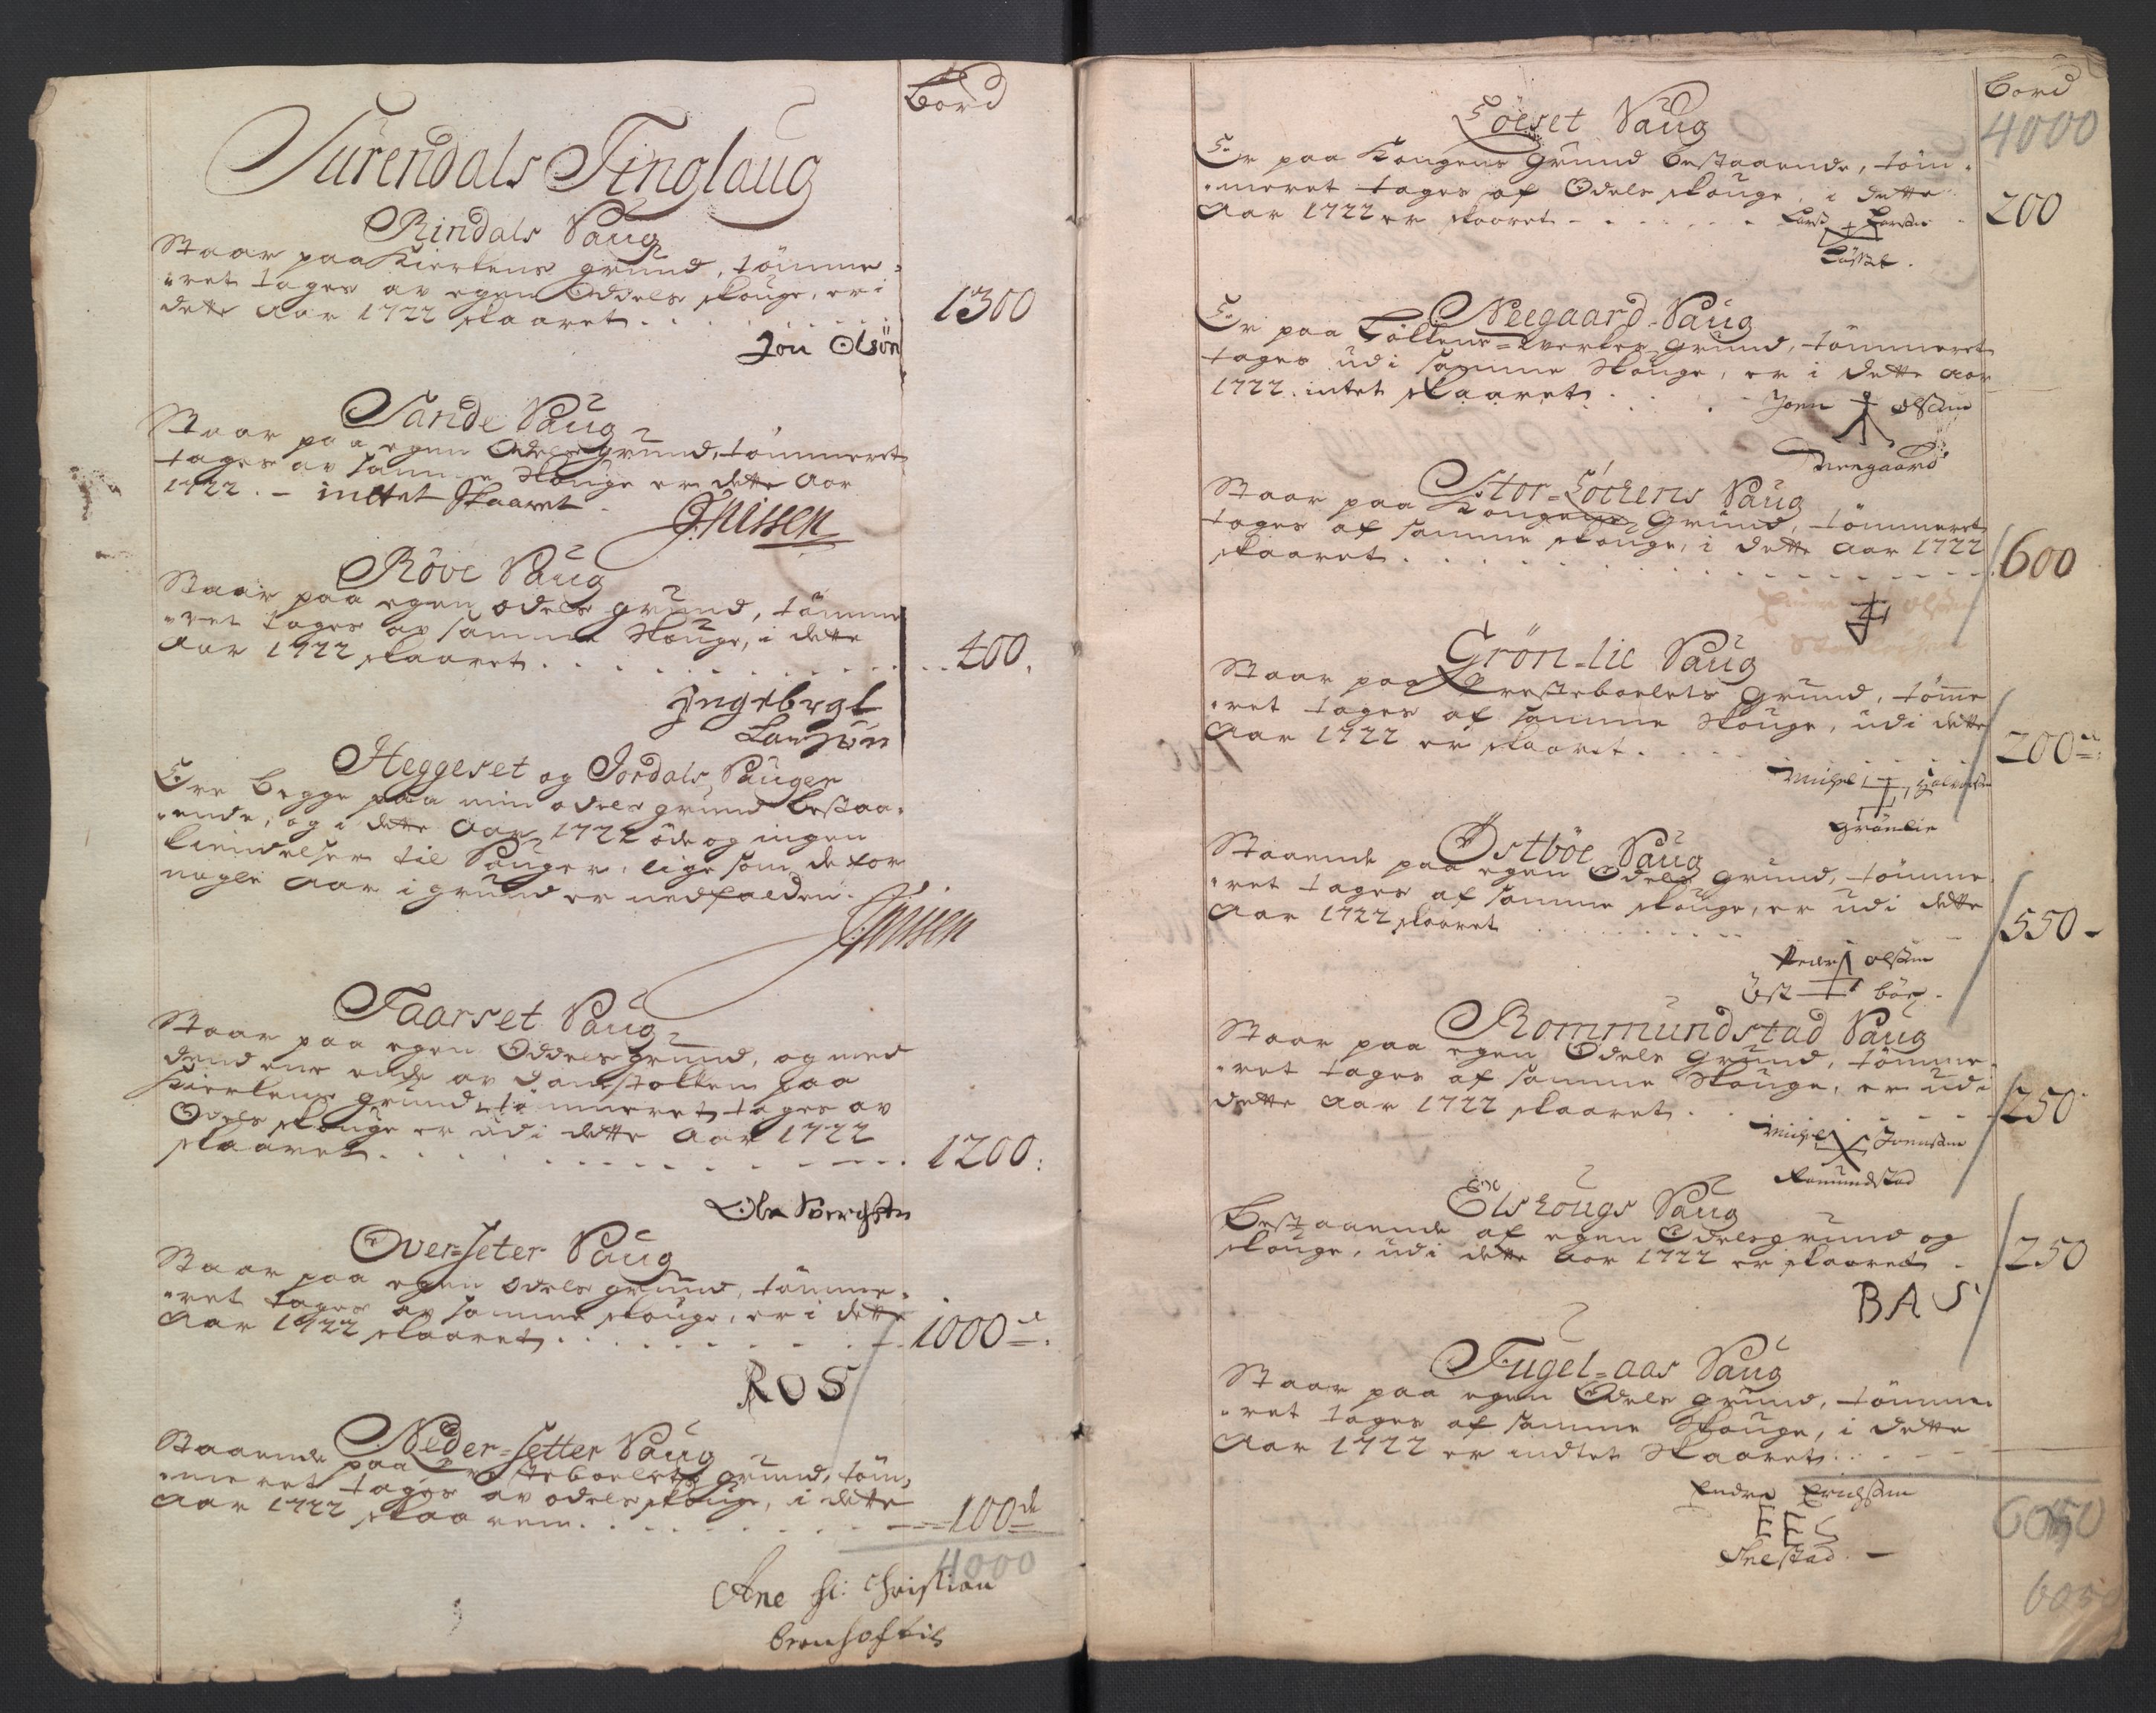 Bord
Surendals Tinglaug
Rindals Saug
Staar paa Kierkens grund, tömme¬
"ret tages av egen Oddels skouge, er i
dette Aar 1722 skaaret . . . . . . 1300
Jon Olsön
Sande Saug
Staar paa egen Odels grund, tömmeret
tages av samme Skouge er dette Aar
1722. – inttet Skaaret.
Röve Saug
Staar paa egen odels grund, tömme
"ret tages av samme Skouge, i dette
Aar 1722 skaaret . . . . . . 400.
Ingebrgt
Larsön
Heggeset og Jordals Sauger
Ere begge paa min odels grund bestaa¬
"ende, og i dette Aar 1722 öde og ingen
kiendelser til Sauger, lige som de for
nogle Aar i grund er nedfalden.
Faarset Saug
Staar paa egen Oddels grund, og med
dend ene ende av Damstokken paa
Kierkens grund, tömmeret tages av
Odels skouge er udi dette Aar 1722
skaaret . . . . . . 1200.
Ole Siverchsen
Over-seter Saug
Staar paa egen odels grund, tömme¬
"ret tages av samme skouge, er i dette
Aar 1722 skaaret . . . . . . 1000
ROS
Neder-setter Saug
Staaende paa Prestebolets grund, töm¬
"meret tages av odels skouge, i dette
Aar 1722 skaaren . . . . . . 100
4000
Ane Sl: Christian
Bord
4000
Löeset Saug
Er paa Kongens grund bestaaende, töm¬
"meret tages af Odels skouge, i dette
Aar 1722 er skaaret . . . . . . 200
Lars Larsen
Löset.
Neegaard Saug
Er paa verkes grund, tömmeret
tages udi samme Skouge, er i dette Aar
1722. intet skaaret.
Joen Olsen
Neegaard
Stor-Löckens Saug
Staar paa Kongens Grund, tömmeret
tages af samme skouge, i dette Aar 1722
skaaret . . . . . . 600
Olsen
Grön-lie Saug
Staar paa Presteboelets Grund, tömme
"ret tages af samme Skouge, udi dette
Aar 1722 er skaaret . . . . . . 200
Michel Halvorsen
Grönlie
Östböe Saug
Staaende paa egen Odels grund, tömme
"ret tages af samme skouge, er udi dette
Aar 1722 skaaret . . . . . . 550
Peder Olsen
Öst böe.
Rommundstad Saug
Staar paa egen Odels Grund, tömme¬
"ret tages af samme Skouge, er udi
dette Aar 1722 skaaret . . . . . . 250
Michel Joensen
Romundstad
Elskougs Saug
Bestaaende af egen Odelsgrund og
skouge, udi dette Aar 1722 er skaaret . 250
BAS
Fugel-aas Saug
Staar paa egen Odels grund, tömme
"ret tages af samme Skouge, i dette
Aar 1722 er indtet Skaaret . . .
Endre Erichsen
EES
6050
6050